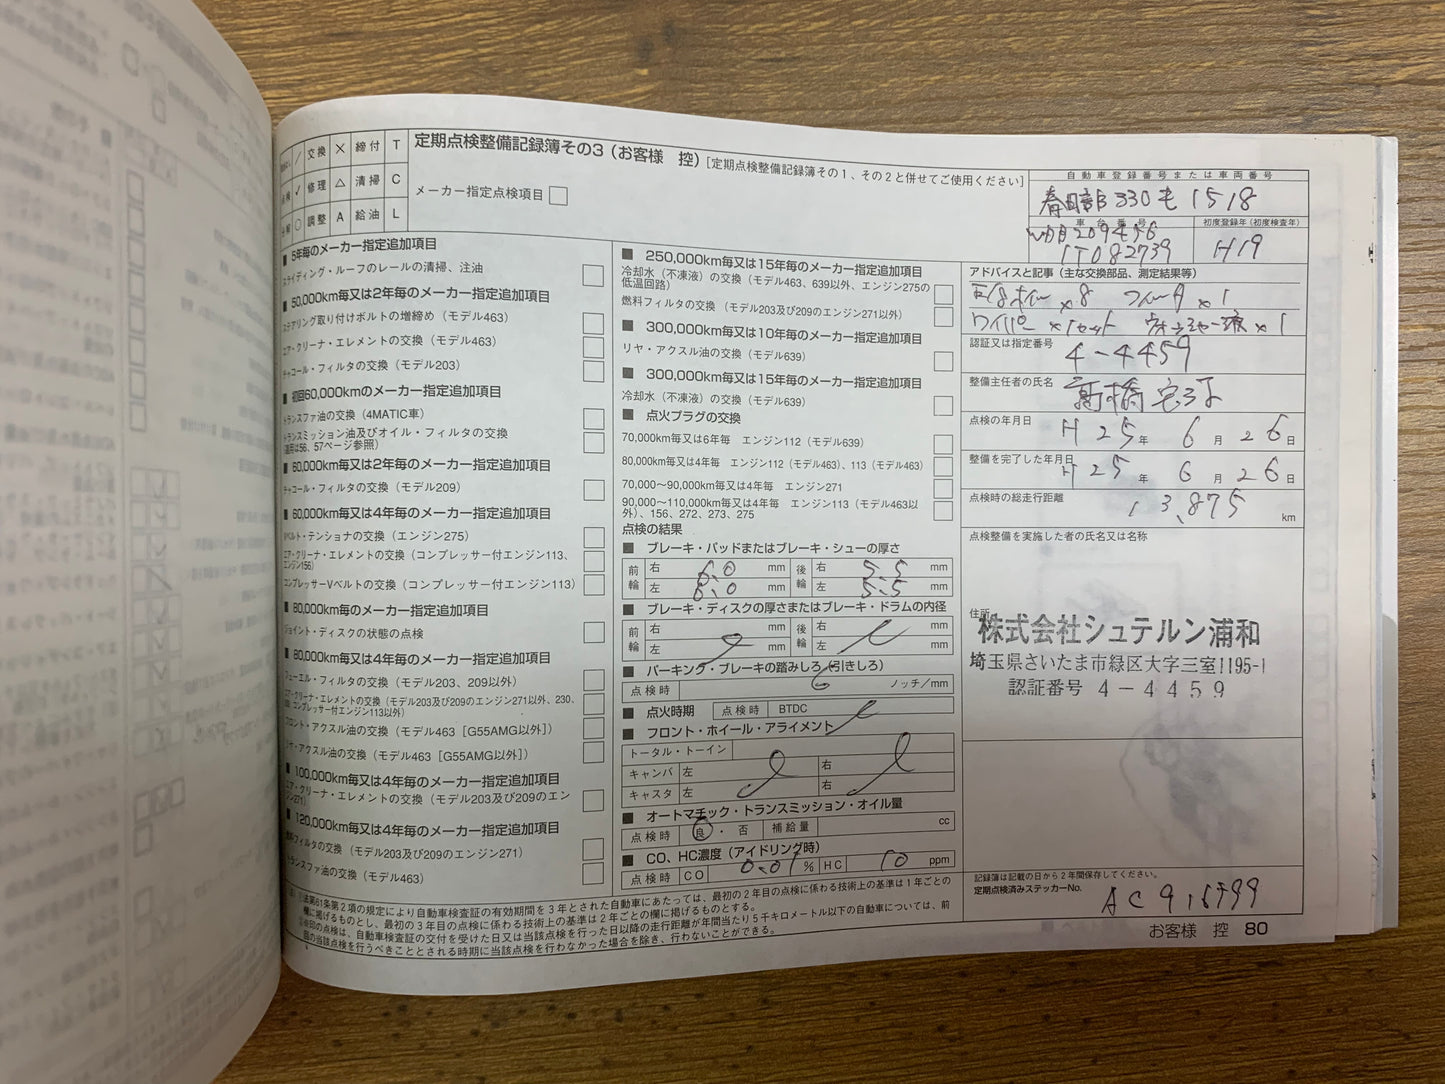 交換 ✕ 締付 T
✓ 修理 △ 清掃 C
○ 調整 A 給油 L
定期点検整備記録簿その3（お客様 控）[定期点検整備記録簿その1、その2と併せてご使用ください]
メーカー指定点検項目
■ 5年毎のメーカー指定追加項目
スライディング・ルーフのレールの清掃、注油
■ 50,000km毎又は2年毎のメーカー指定追加項目
ステアリング取り付けボルトの増締め（モデル463）
エア・クリーナ・エレメントの交換（モデル463）
チャコール・フィルタの交換（モデル203）
■ 初回60,000kmのメーカー指定追加項目
トランスファ油の交換（4MATIC車）
トランスミッション油及びオイル・フィルタの交換
（適用は56、57ページ参照）
■ 60,000km毎又は2年毎のメーカー指定追加項目
チャコール・フィルタの交換（モデル209）
■ 60,000km毎又は4年毎のメーカー指定追加項目
Vベルト・テンショナの交換（エンジン275）
エア・クリーナ・エレメントの交換（コンプレッサー付エンジン113、
エンジン156）
コンプレッサーVベルトの交換（コンプレッサー付エンジン113）
■ 80,000km毎のメーカー指定追加項目
ジョイント・ディスクの状態の点検
■ 80,000km毎又は4年毎のメーカー指定追加項目
フューエル・フィルタの交換（モデル203、209以外）
エア・クリーナ・エレメントの交換（モデル203及び209のエンジン271以外、230、
コンプレッサー付エンジン113以外）
フロント・アクスル油の交換（モデル463［G55AMG以外］）
リヤ・アクスル油の交換（モデル463［G55AMG以外］）
■ 100,000km毎又は4年毎のメーカー指定追加項目
エア・クリーナ・エレメントの交換（モデル203及び209のエン
ジン271）
■ 120,000km毎又は4年毎のメーカー指定追加項目
燃料フィルタの交換（モデル203及び209のエンジン271）
トランスファ油の交換（モデル463）
■ 250,000km毎又は15年毎のメーカー指定追加項目
冷却水（不凍液）の交換（モデル463、639以外、エンジン275の
低温回路）
燃料フィルタの交換（モデル203及び209のエンジン271以外）
■ 300,000km毎又は10年毎のメーカー指定追加項目
リヤ・アクスル油の交換（モデル639）
■ 300,000km毎又は15年毎のメーカー指定追加項目
冷却水（不凍液）の交換（モデル639）
■ 点火プラグの交換
70,000km毎又は6年毎 エンジン112（モデル639）
80,000km毎又は4年毎 エンジン112（モデル463）、113（モデル463）
70,000〜90,000km毎又は4年毎 エンジン271
90,000〜110,000km毎又は4年毎 エンジン113（モデル463以
外）、156、272、273、275
点検の結果
■ ブレーキ・パッドまたはブレーキ・シューの厚さ
前輪 右 6.0 mm 後輪 右 5.5 mm
左 6.0 mm 左 5.5 mm
■ ブレーキ・ディスクの厚さまたはブレーキ・ドラムの内径
前輪 右 mm 後輪 右 mm
左 mm 左 mm
■ パーキング・ブレーキの踏みしろ（引きしろ）
点検時 6 ノッチ／mm
■ 点火時期 点検時 BTDC
■ フロント・ホイール・アライメント
トータル・トーイン
キャンバ 左 右
キャスタ 左 右
■ オートマチック・トランスミッション・オイル量
点検時 良・否 補給量 cc
■ CO、HC濃度（アイドリング時）
点検時 CO 0.01 % HC 10 ppm
自動車登録番号または車両番号
春日部 330 も 1518
車台番号 初度登録年（初度検査年）
WDB209456
1T082739 H19
アドバイスと記事（主な交換部品、測定結果等）
×8 ×1
ワイパー×1セット ウォッシャー液×1
認証又は指定番号
4-4459
整備主任者の氏名
高橋
点検の年月日
H25年 6月26日
整備を完了した年月日
H25年 6月26日
点検時の総走行距離
13,875 km
点検整備を実施した者の氏名又は名称
住所
株式会社シュテルン浦和
埼玉県さいたま市緑区大字三室1195-1
認証番号 4-4459
記録簿は記載の日から2年間保存してください。
定期点検済みステッカーNo.
法第61条第2項の規定により自動車検査証の有効期間を3年とされた自動車にあたっては、最初の2年目の点検に係わる技術上の基準は1年ごとの
欄に掲げるものとし、最初の3年目の点検に係わる技術上の基準は2年ごとの欄に掲げるものとする。
印の点検は、自動車検査証の交付を受けた日又は当該点検を行った日以降の走行距離が年間当たり5千キロメートル以下の自動車については、前
回の当該点検を行うべきこととされる時期に当該点検を行わなかった場合を除き、行わないことができる。
お客様 控 80